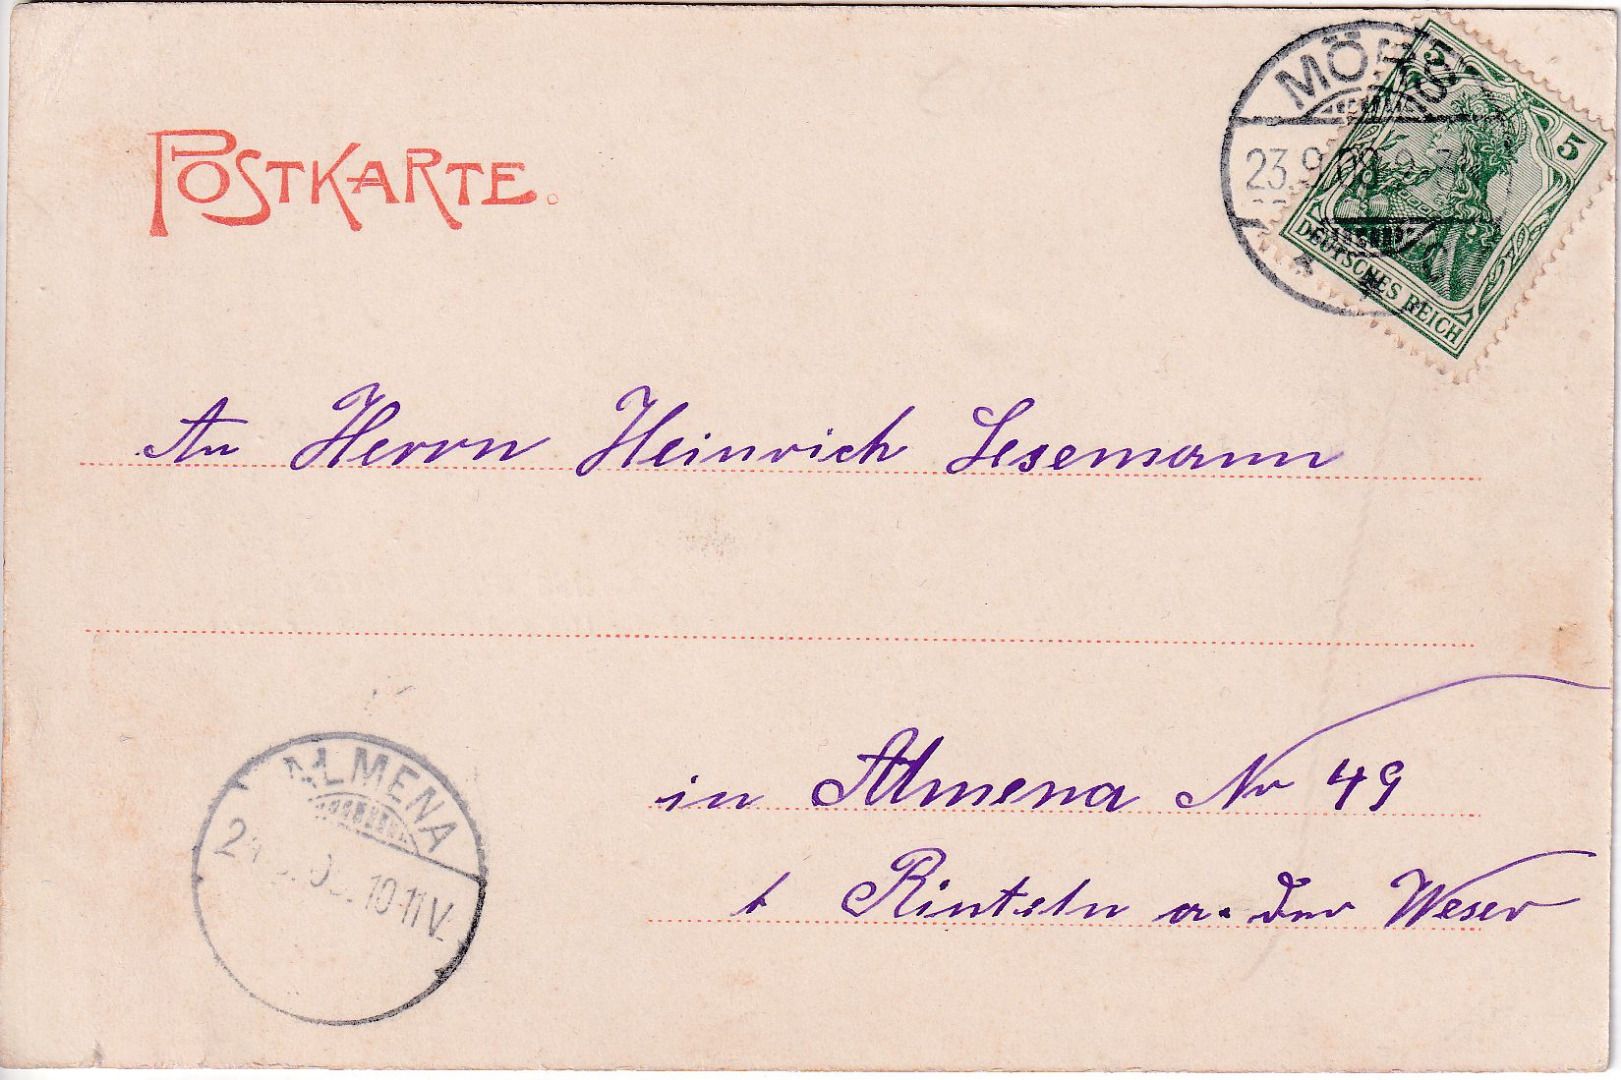 POSTKARTE.
MÖRS
23.9.03.
5 5
DEUTSCHES REICH
An Herrn Heinrich Lesemann
in Almena No 49
b Rinteln a. der Weser
ALMENA
10-11V.